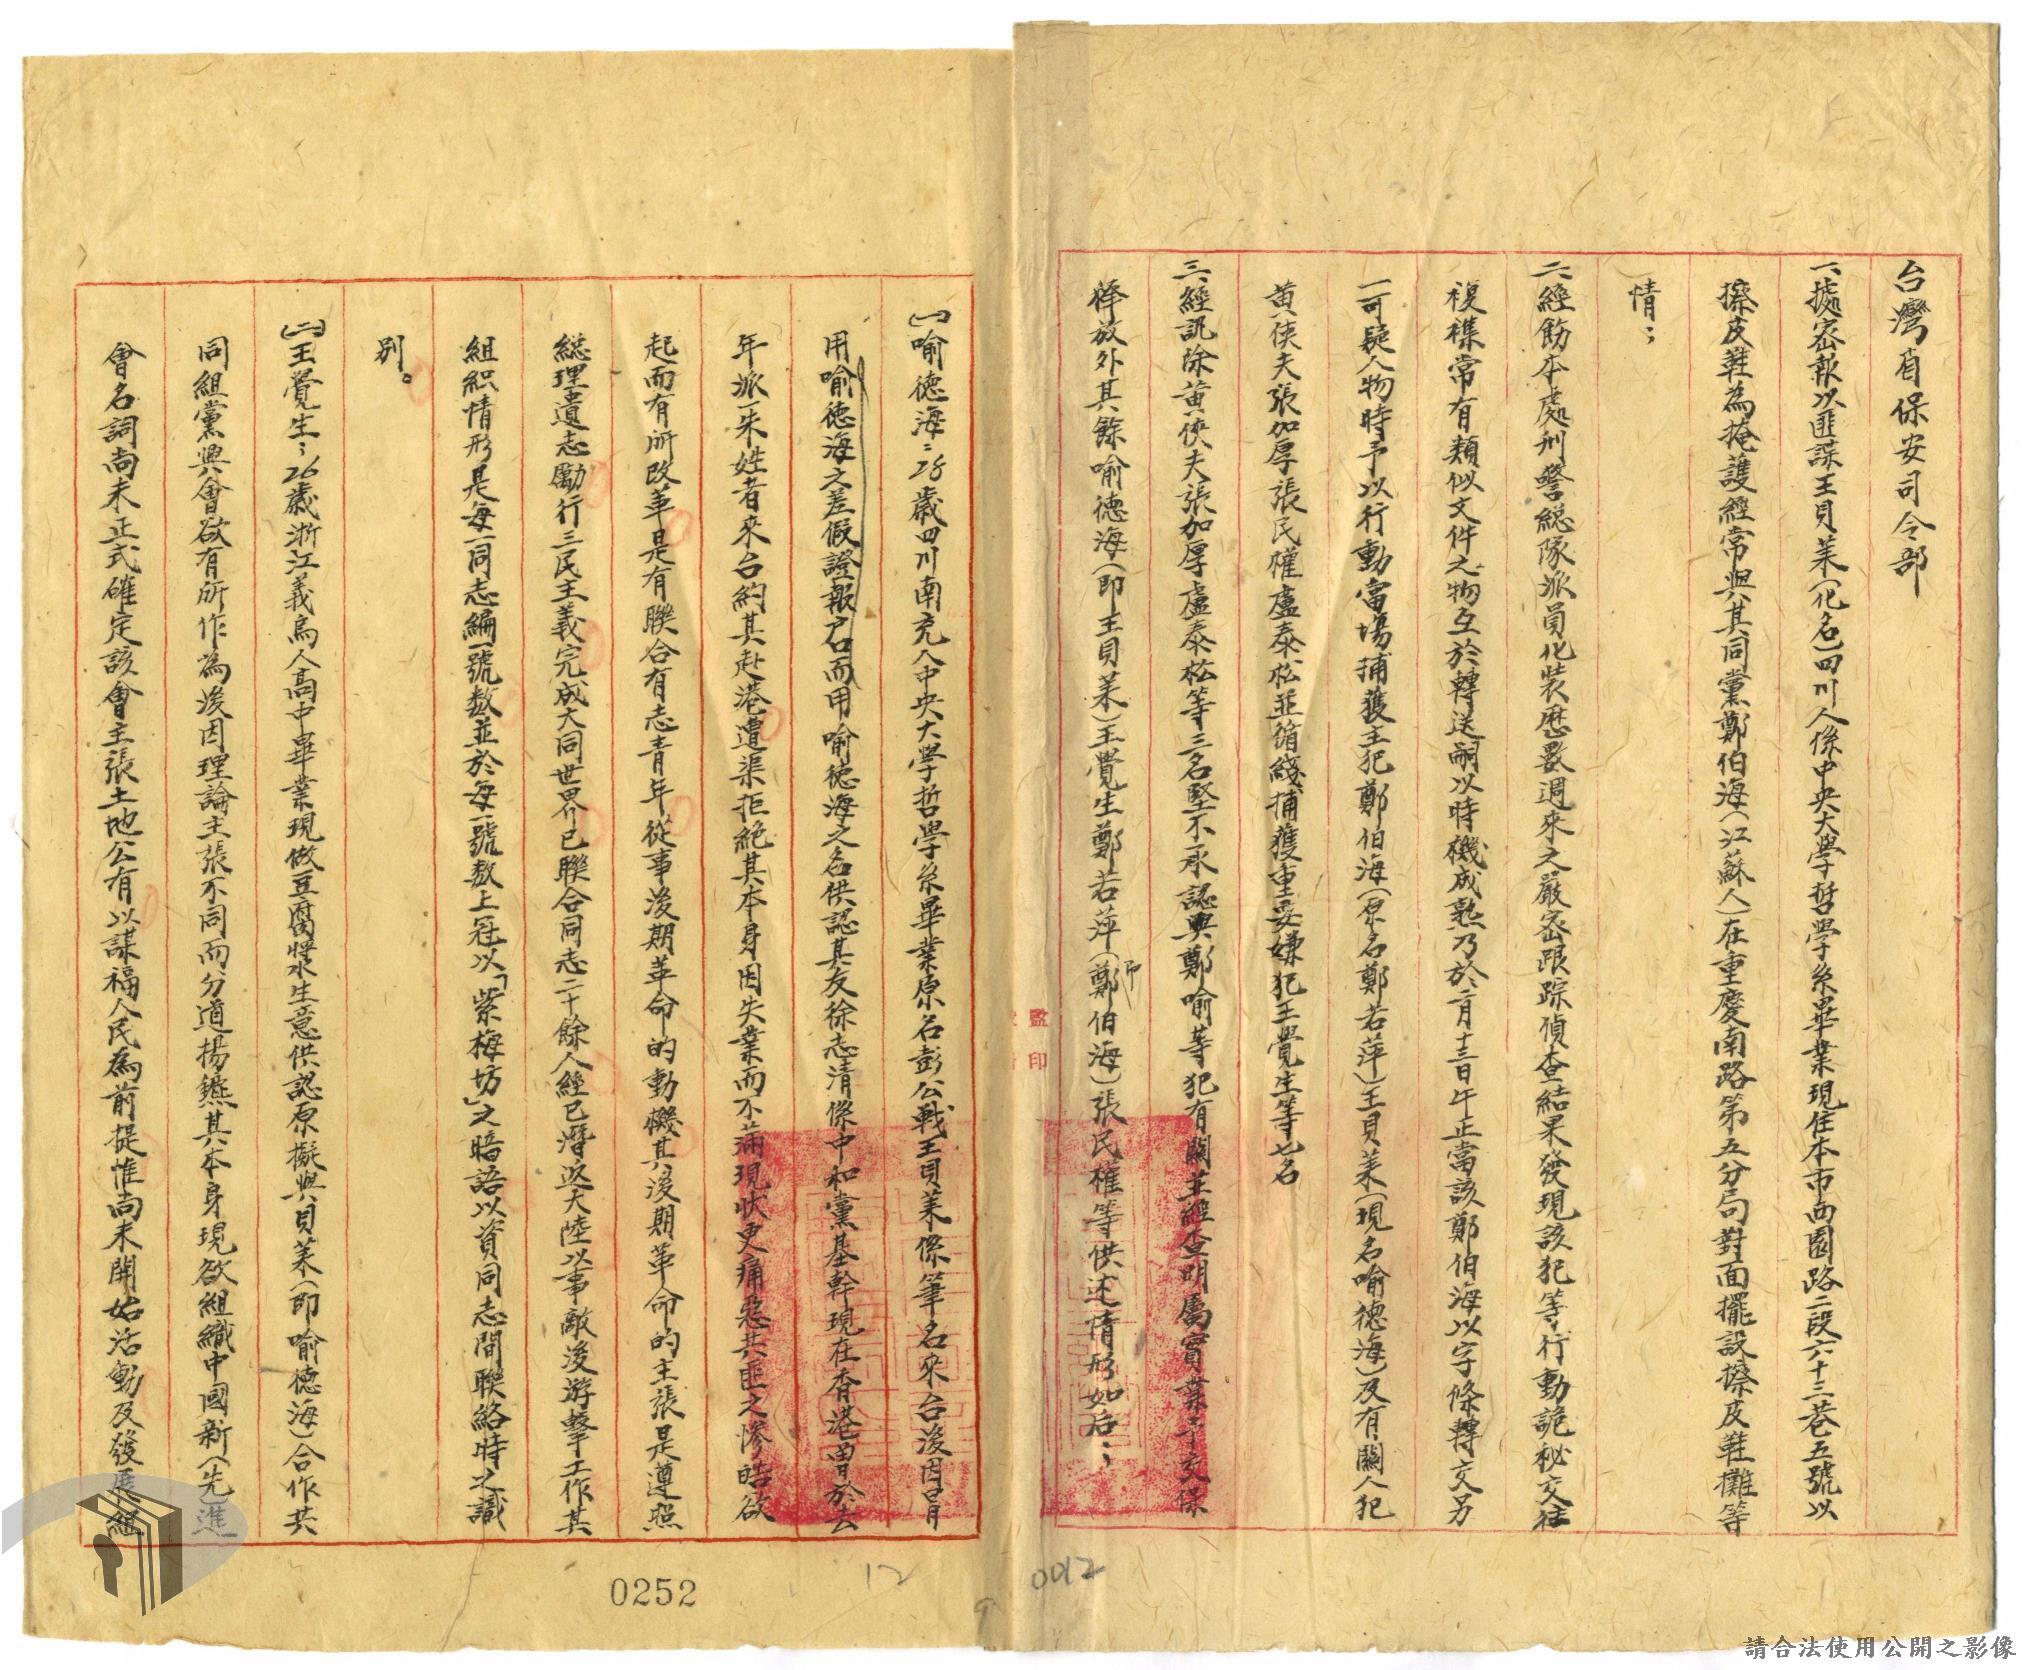 台灣省保安司令部
一、據密報以匪諜王貝萊(化名)四川人係中央大學哲學系畢業現住本市西園路二段六十三巷五號以
擦皮鞋為掩護經常與其同黨鄭伯海(江蘇人)在重慶南路第五分局對面擺設擦皮鞋攤等
情；
二、經飭本處刑警總隊派員化裝歷數週來之嚴密跟踪偵查結果發現該犯等行動詭秘交往
複襍常有類似文件之物互於轉送嗣以時機成熟乃於一月十三日午正當該鄭伯海以字條轉交另
一可疑人物時予以行動當場捕獲主犯鄭伯海(原名鄭若萍)王貝萊(現名喻德海)及有關人犯
黃俠夫張加厚張民權盧泰松並循綫捕獲重要嫌犯王覺生等七名
三、經訊除黃俠夫張加厚盧泰松等三名堅不承認與鄭喻等犯有關並經查明屬實業予交保
釋放外其餘喻德海(即王貝萊)王覺生鄭若萍(即鄭伯海)張民權等供述情形如后；
(一)喻德海：28歲四川南充人中央大學哲學系畢業原名彭公戟王貝萊係筆名來台後因冒
用喻德海之差假證報戶口而用喻德海之名供認其友徐志清係中和黨基幹現在香港曾於去
年派一朱姓者來台約其赴港遭渠拒絕其本身因失業而不滿現狀更痛惡共匪之慘酷欲
起而有所改革是有聯合有志青年從事後期革命的動機其後期革命的主張是遵照
總理遺志勵行三民主義完成大同世界已聯合同志二十餘人經已潛返大陸以事敵後游擊工作其
組织情形是每一同志編一號数並於每一號数上冠以「紫梅坊」之暗語以資同志間聯絡時之識
別。
(二)王覺生：26歲浙江義烏人高中畢業現做豆腐漿生意供認原擬與貝萊(即喻德海)合作共
同組黨興會欲有所作為後因理論主張不同而分道揚鑣其本身現欲組織中國新(先)進
會名詞尚未正式確定該會主張土地公有以謀福人民為前提惟尚未開始活動及發展組
監印
0252
12
0012
請合法使用公開之影像